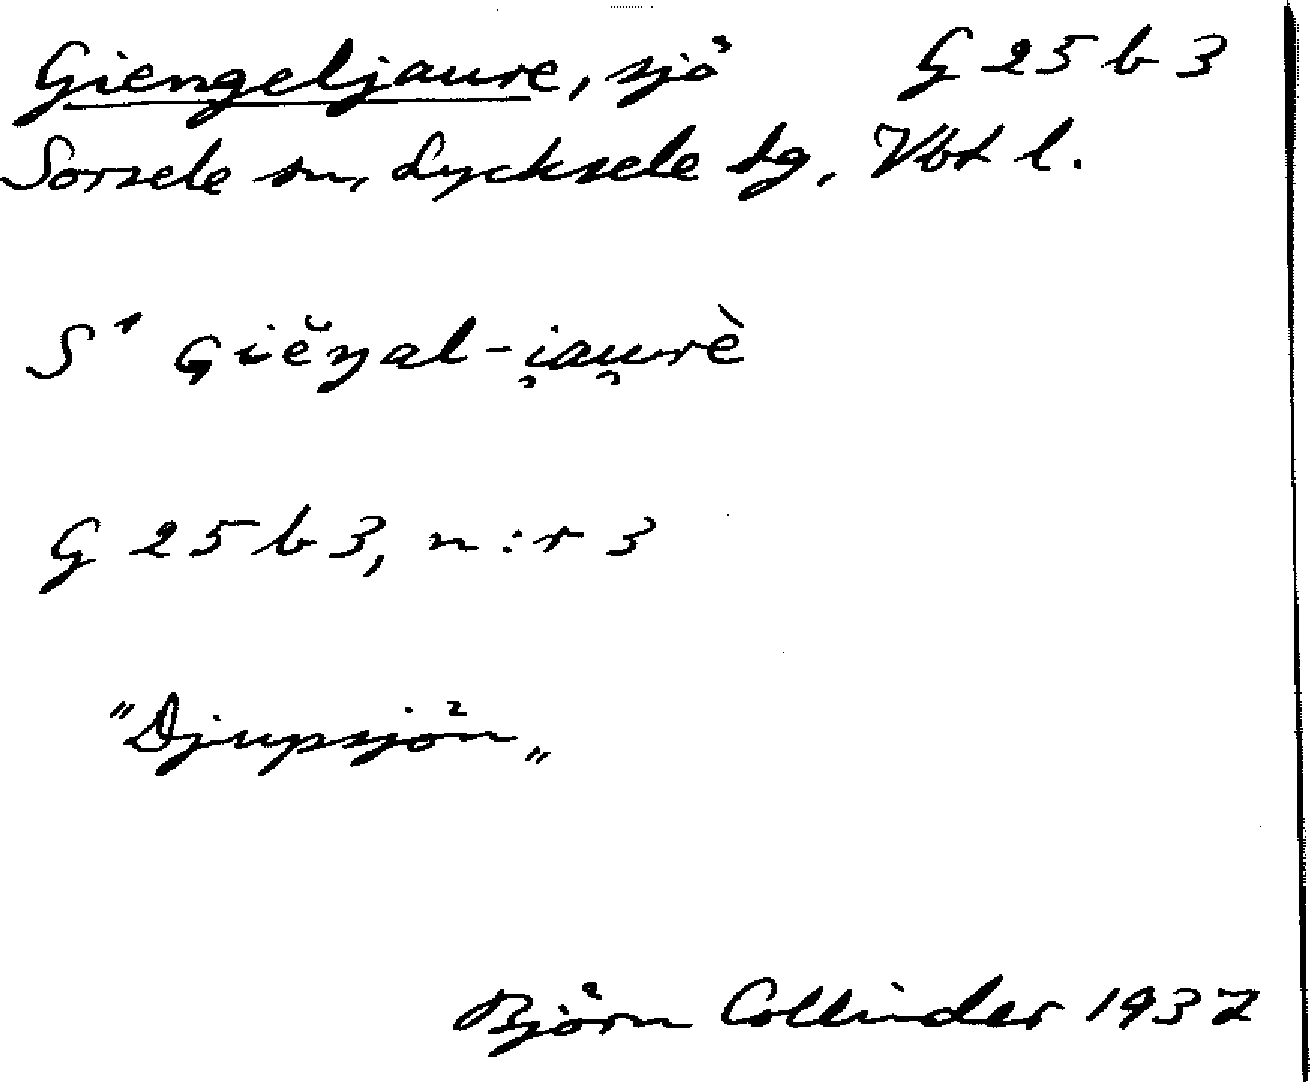 Giengeljaure, sjö G 25 b 3
Sorsele sn, Lycksele dg, Vbt l.
S¹ Giĕŋal-i̯au̯rè
G 25 b 3, n:r 3
"Djupsjön"
Björn Collinder 1937